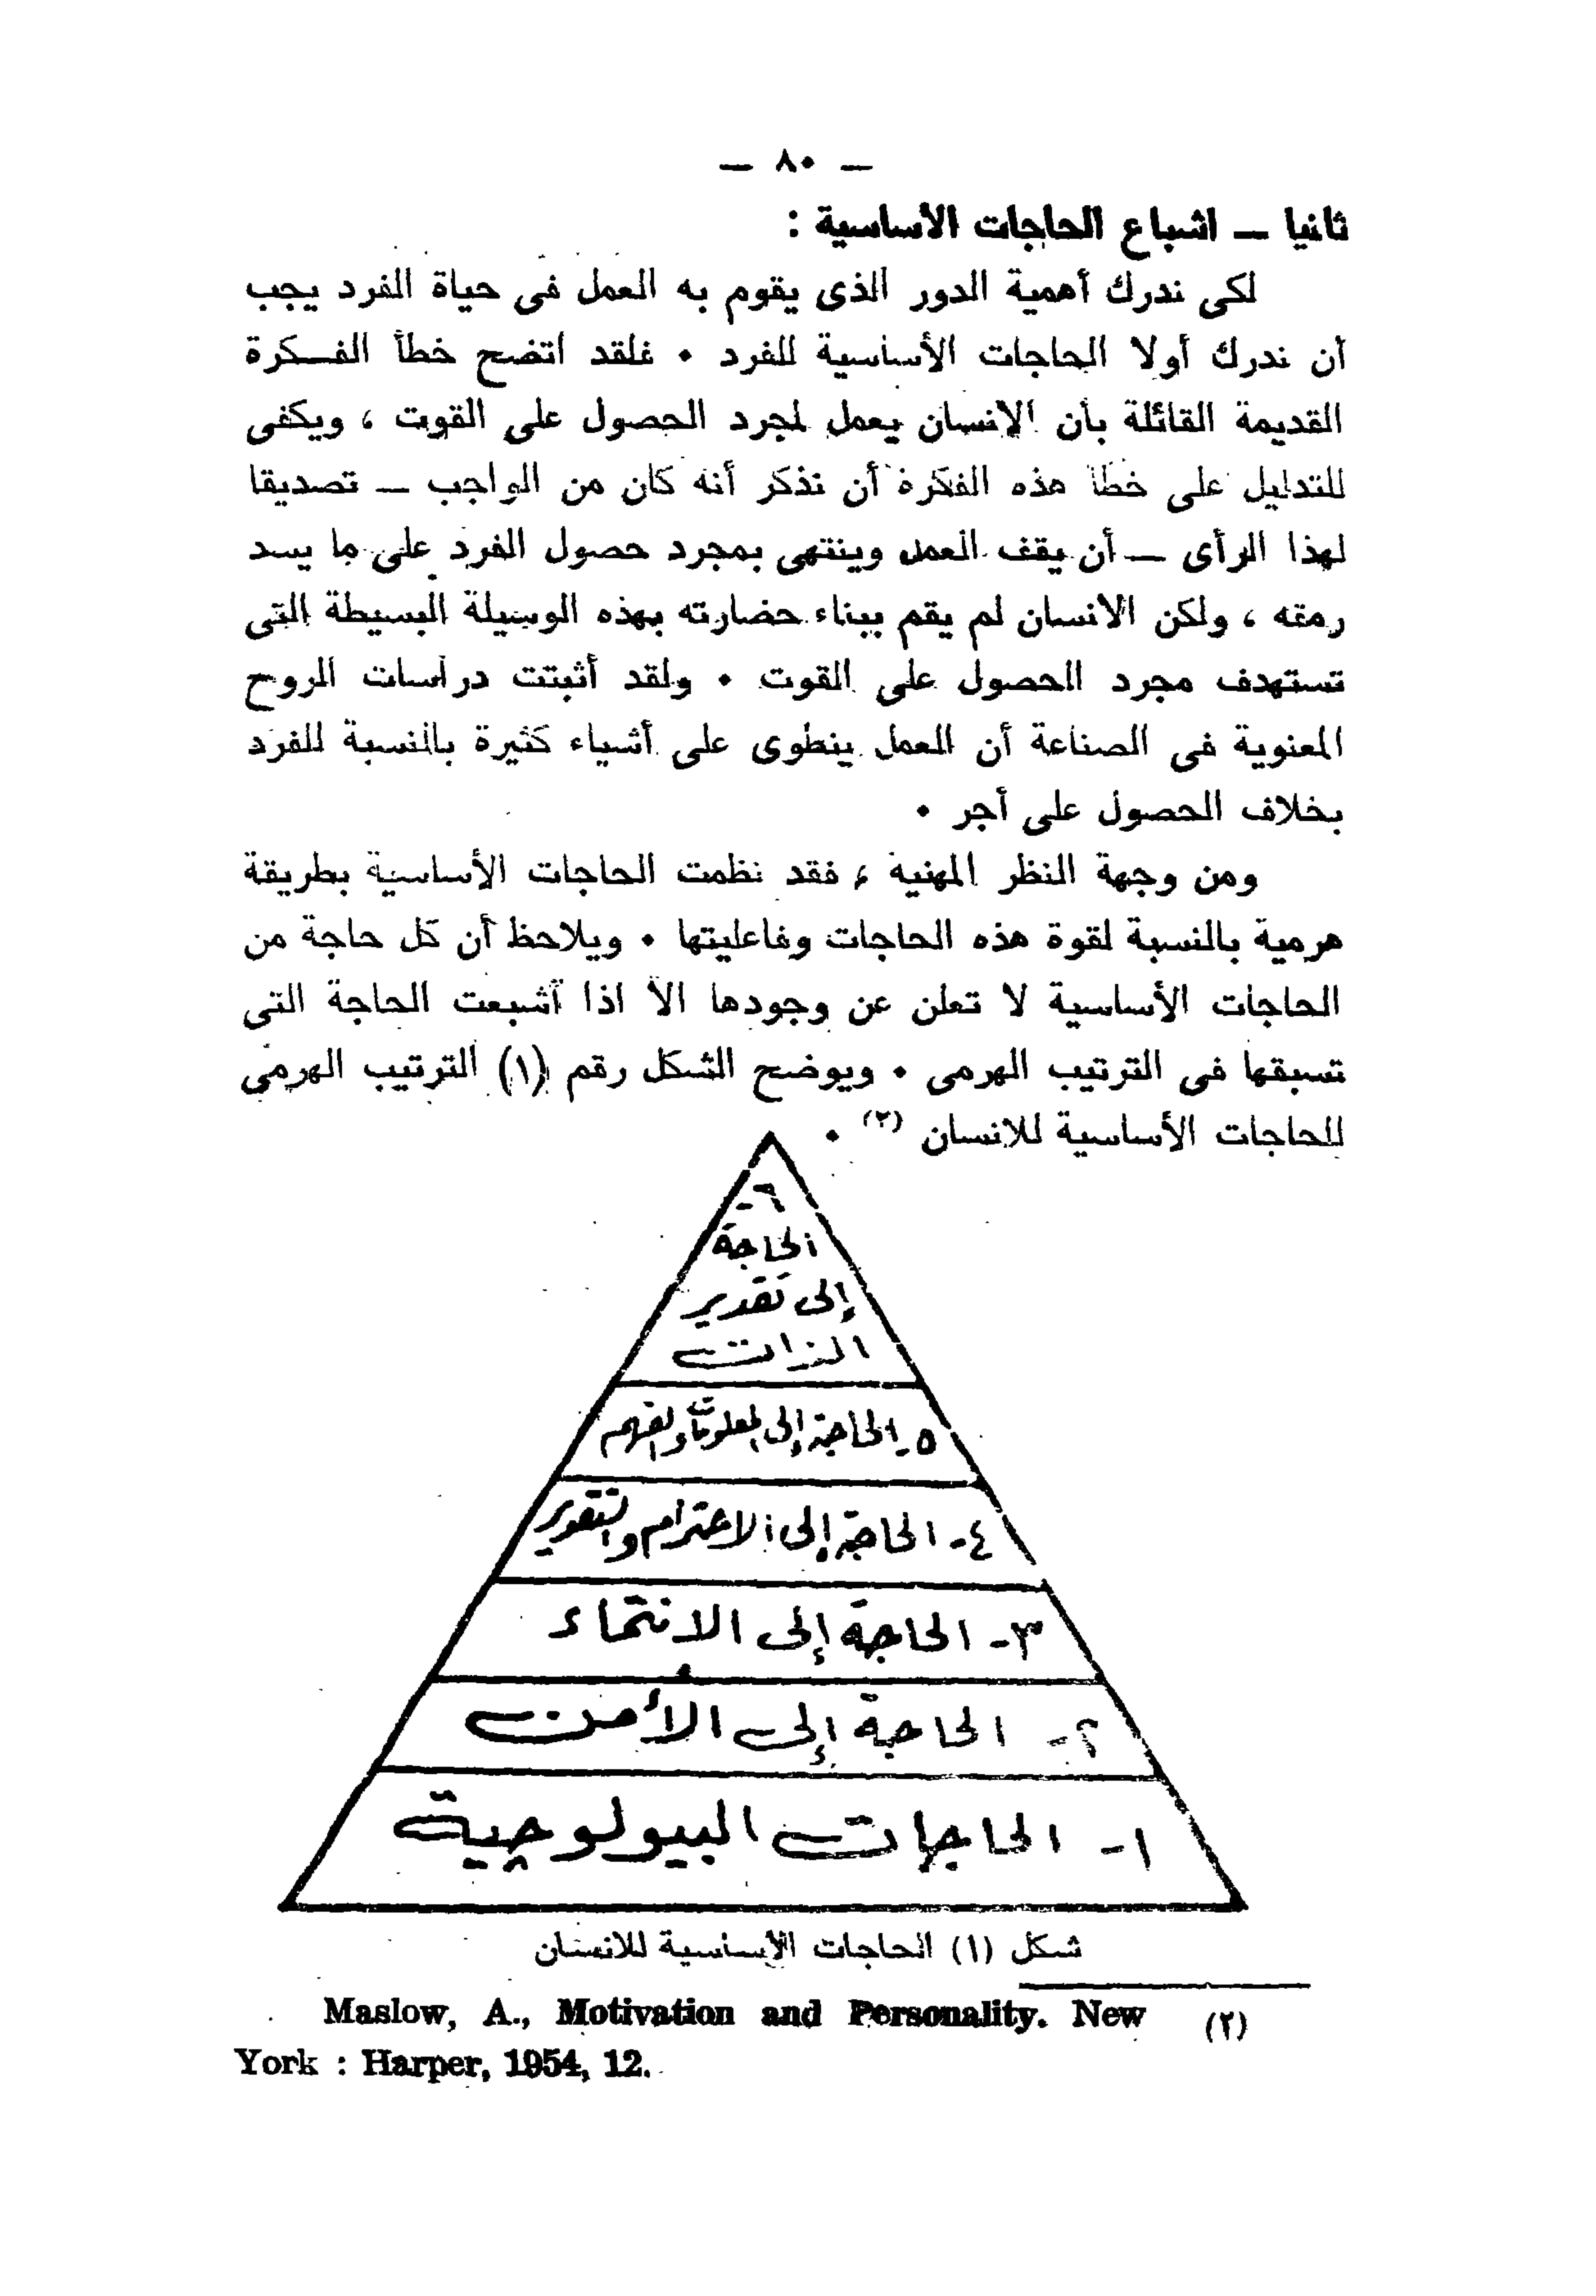 — ٨٠ —
ثانيا — اشباع الحاجات الأساسية :
لكى ندرك أهمية الدور الذى يقوم به العمل فى حياة الفرد يجب
أن ندرك أولا الحاجات الأساسية للفرد ٠ فلقد اتضح خطأ الفكرة
القديمة القائلة بأن الانسان يعمل لمجرد الحصول على القوت ، ويكفى
للتدليل على خطأ هذه الفكرة أن نذكر أنه كان من الواجب — تصديقا
لهذا الرأى — أن يقف العمل وينتهى بمجرد حصول الفرد على ما يسد
رمقه ، ولكن الانسان لم يقم ببناء حضارته بهذه الوسيلة البسيطة التى
تستهدف مجرد الحصول على القوت ٠ ولقد أثبتت دراسات الروح
المعنوية فى الصناعة أن العمل ينطوى على أشياء كثيرة بالنسبة للفرد
بخلاف الحصول على أجر ٠
ومن وجهة النظر المهنية ، فقد نظمت الحاجات الأساسية بطريقة
هرمية بالنسبة لقوة هذه الحاجات وفاعليتها ٠ ويلاحظ أن كل حاجة من
الحاجات الأساسية لا تعلن عن وجودها الا اذا أشبعت الحاجة التى
تسبقها فى الترتيب الهرمى ٠ ويوضح الشكل رقم (١) الترتيب الهرمى
للحاجات الأساسية للانسان (٢) ٠
٦-
الحاجة
إلى تقدير
الذات
٥- الحاجة إلى المعلومات والفهم
٤- الحاجة إلى الاحترام والتقدير
٣- الحاجة إلى الانتماء
٢- الحاجة إلى الأمن
١- الحاجات البيولوجية
شكل (١) الحاجات الأساسية للانسان
(٢) Maslow, A., Motivation and Personality. New
York : Harper, 1954, 12.